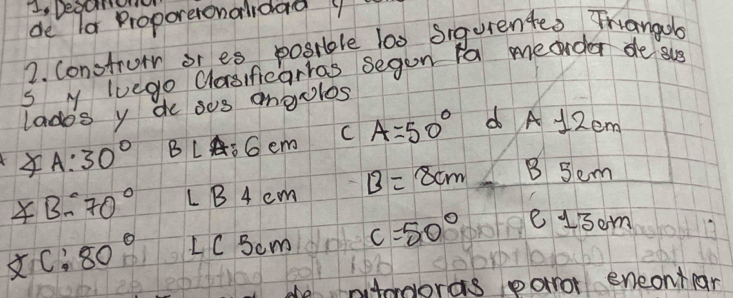 1. Desarr
de la Proporcionalidad y
2. Construir si es posible los siguientes Triangulo
s y luego Clasificarlas segun la meardar de sus
lados y de sus angulos
∡ A: 30° B L A: 6 cm C A = 50° d A 12cm
∡ B: 70° L B 4 cm B = 8cm B 5cm
∡ C: 80° L C 5cm C = 50° C 13cm
de pitagoras para encontrar